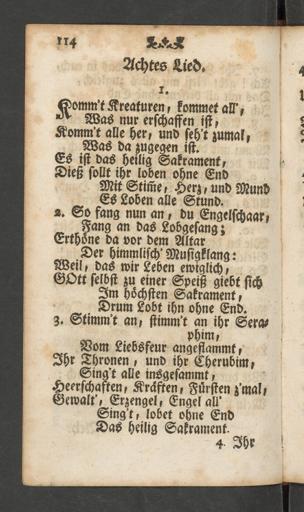 114
Achtes Lied.
1.
Komm't Kreaturen, kommet all',
Was nur erschaffen ist,
Komm't alle her, und seh't zumal,
Was da zugegen ist.
Es ist das heilig Sakrament,
Dieß sollt ihr loben ohne End
Mit Stim̅e, Herz, und Mund
Es Loben alle Stund.
2. So fang nun an, du Engelschaar,
Fang an das Lobgesang;
Erthöne da vor dem Altar
Der himmlisch' Musigklang:
Weil, das wir Leben ewiglich,
GOtt selbst zu einer Speiß giebt sich
Im höchsten Sakrament,
Drum Lobt ihn ohne End.
3. Stimm't an, stimm't an ihr Sera-
phim,
Vom Liebsfeur angeflammt,
Ihr Thronen, und ihr Cherubim,
Sing't alle insgesammt,
Heerschaften, Kräften, Fürsten z'mal,
Gewalt', Erzengel, Engel all'
Sing't, lobet ohne End
Das heilig Sakrament.
4. Ihr